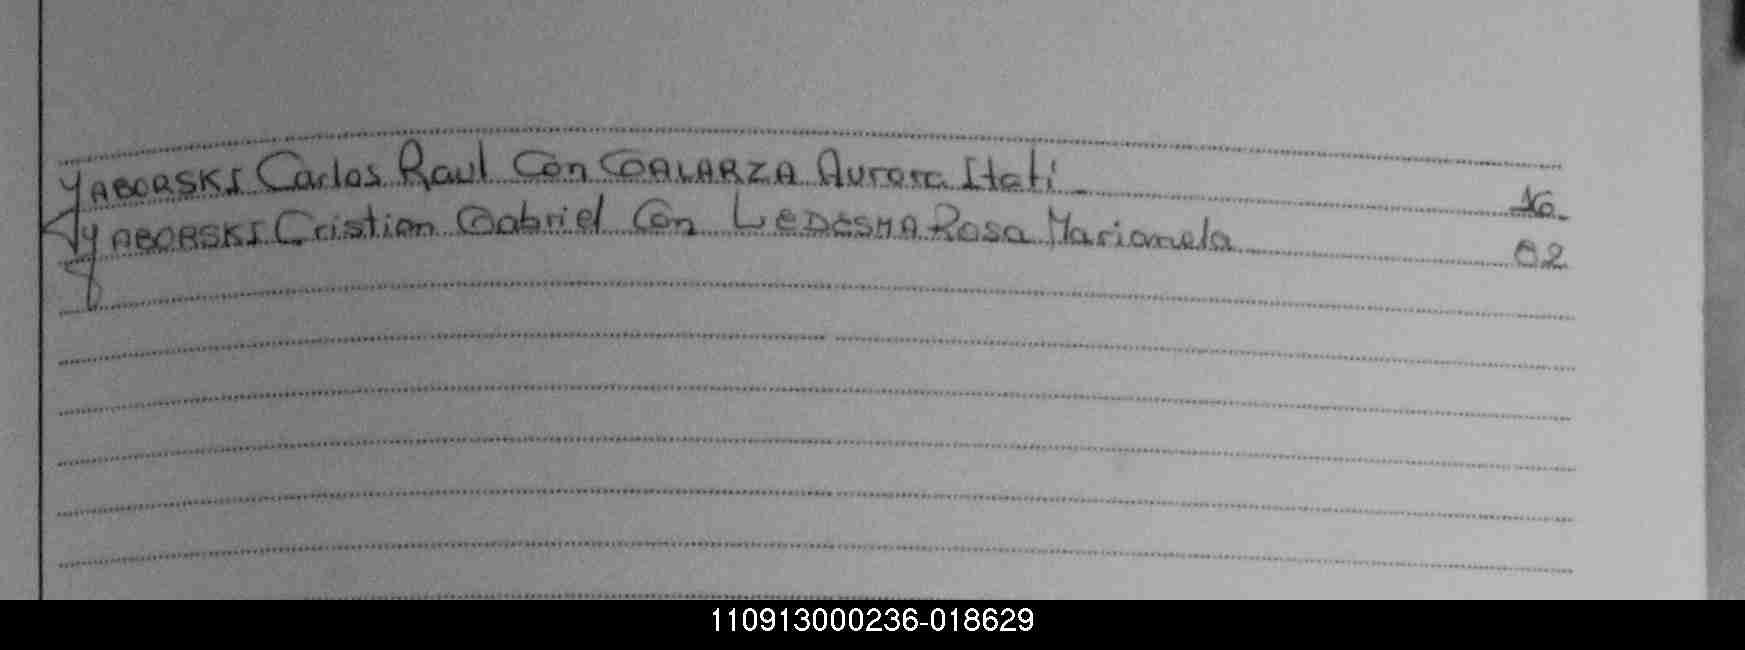 YABORSKI Carlos Raul Con GALARZA Aurora Itati 16
YABORSKI Cristian Gabriel Con LEDESMA Rosa Mariamela 82
110913000236-018629